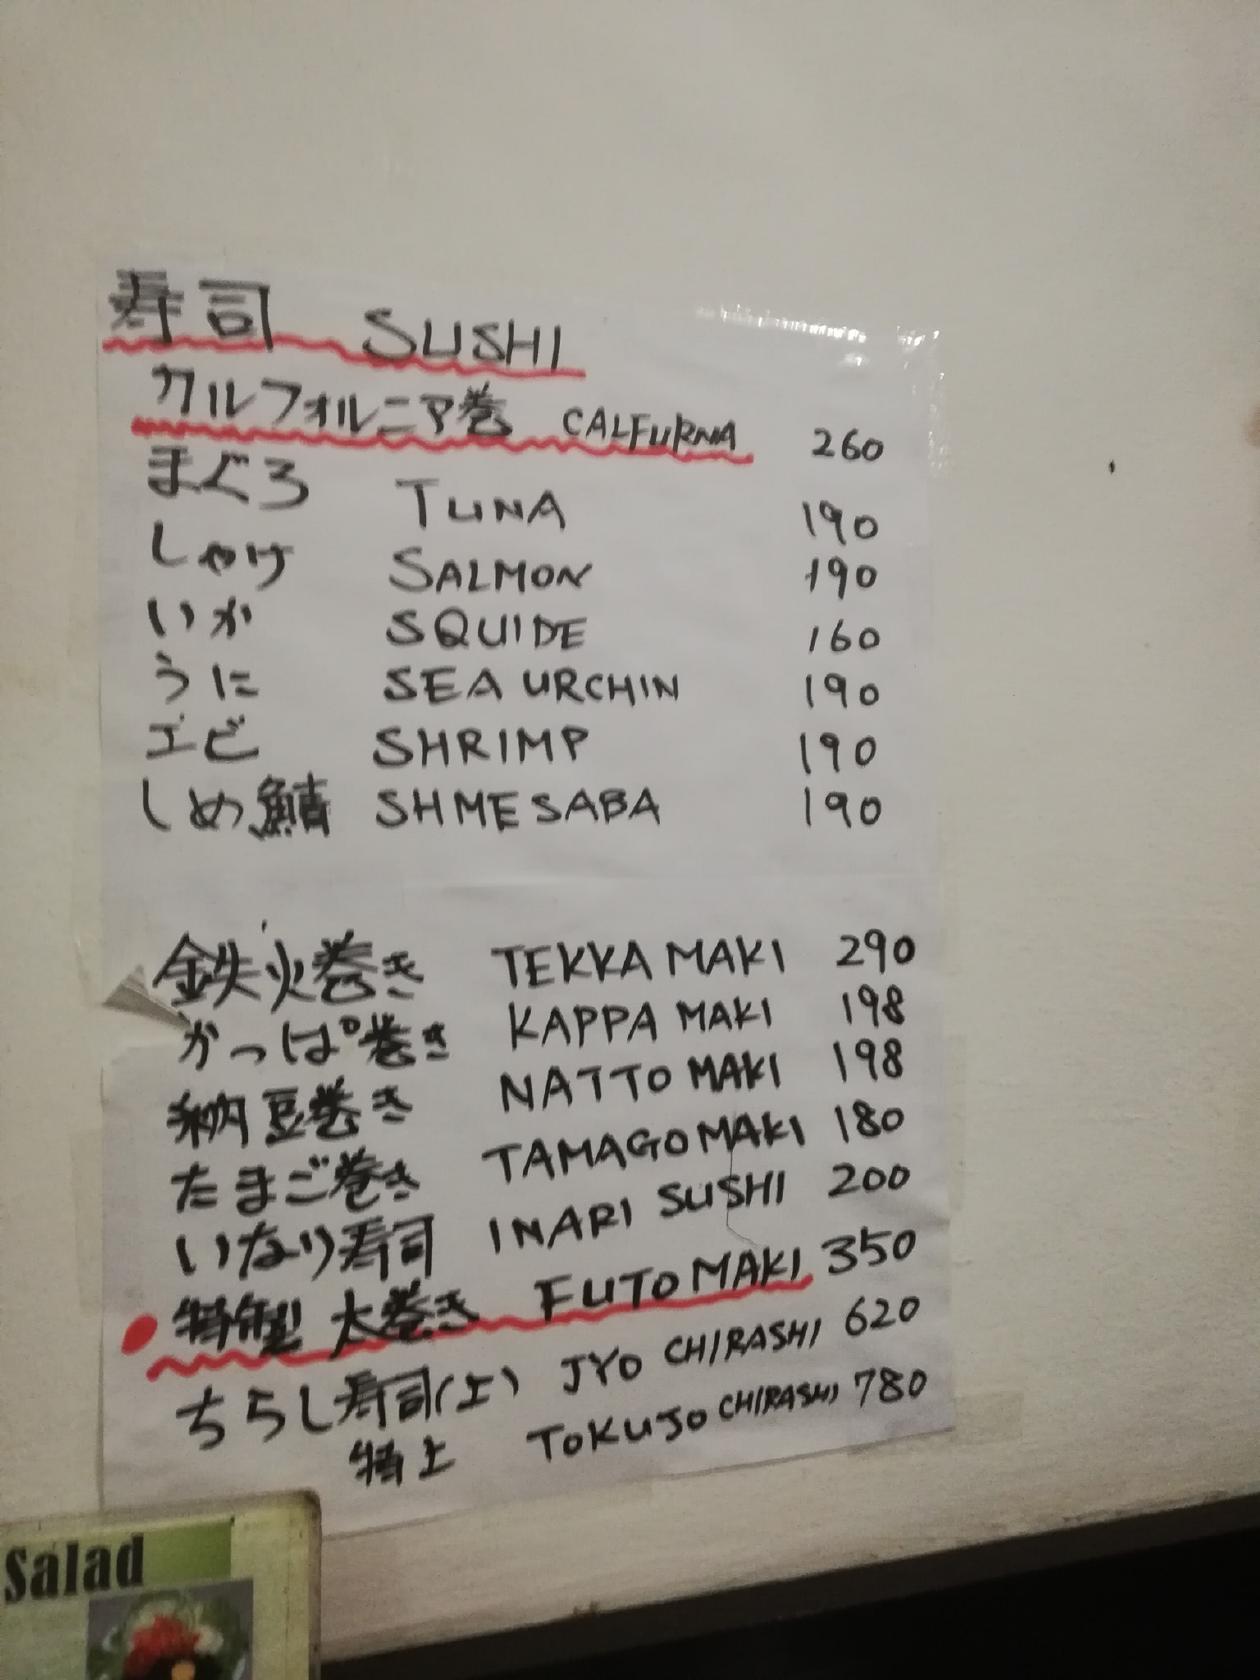 寿司 SUSHI
カルフォルニア巻 CALFURNA 260
まぐろ TUNA 190
しゃけ SALMON 190
いか SQUIDE 160
うに SEA URCHIN 190
エビ SHRIMP 190
しめ鯖 SHMESABA 190
鉄火巻き TEKKA MAKI 290
かっぱ巻き KAPPA MAKI 198
納豆巻き NATTO MAKI 198
たまご巻き TAMAGO MAKI 180
いなり寿司 INARI SUSHI 200
特製 太巻き FUTO MAKI 350
ちらし寿司(上) JYO CHIRASHI 620
特上 TOKUJO CHIRASHI 780
Salad